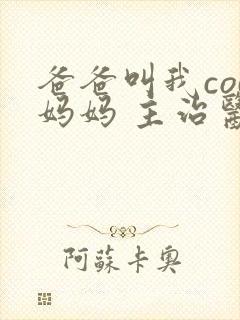 爸爸叫我co
妈妈 主治醫
阿蘇卡奧